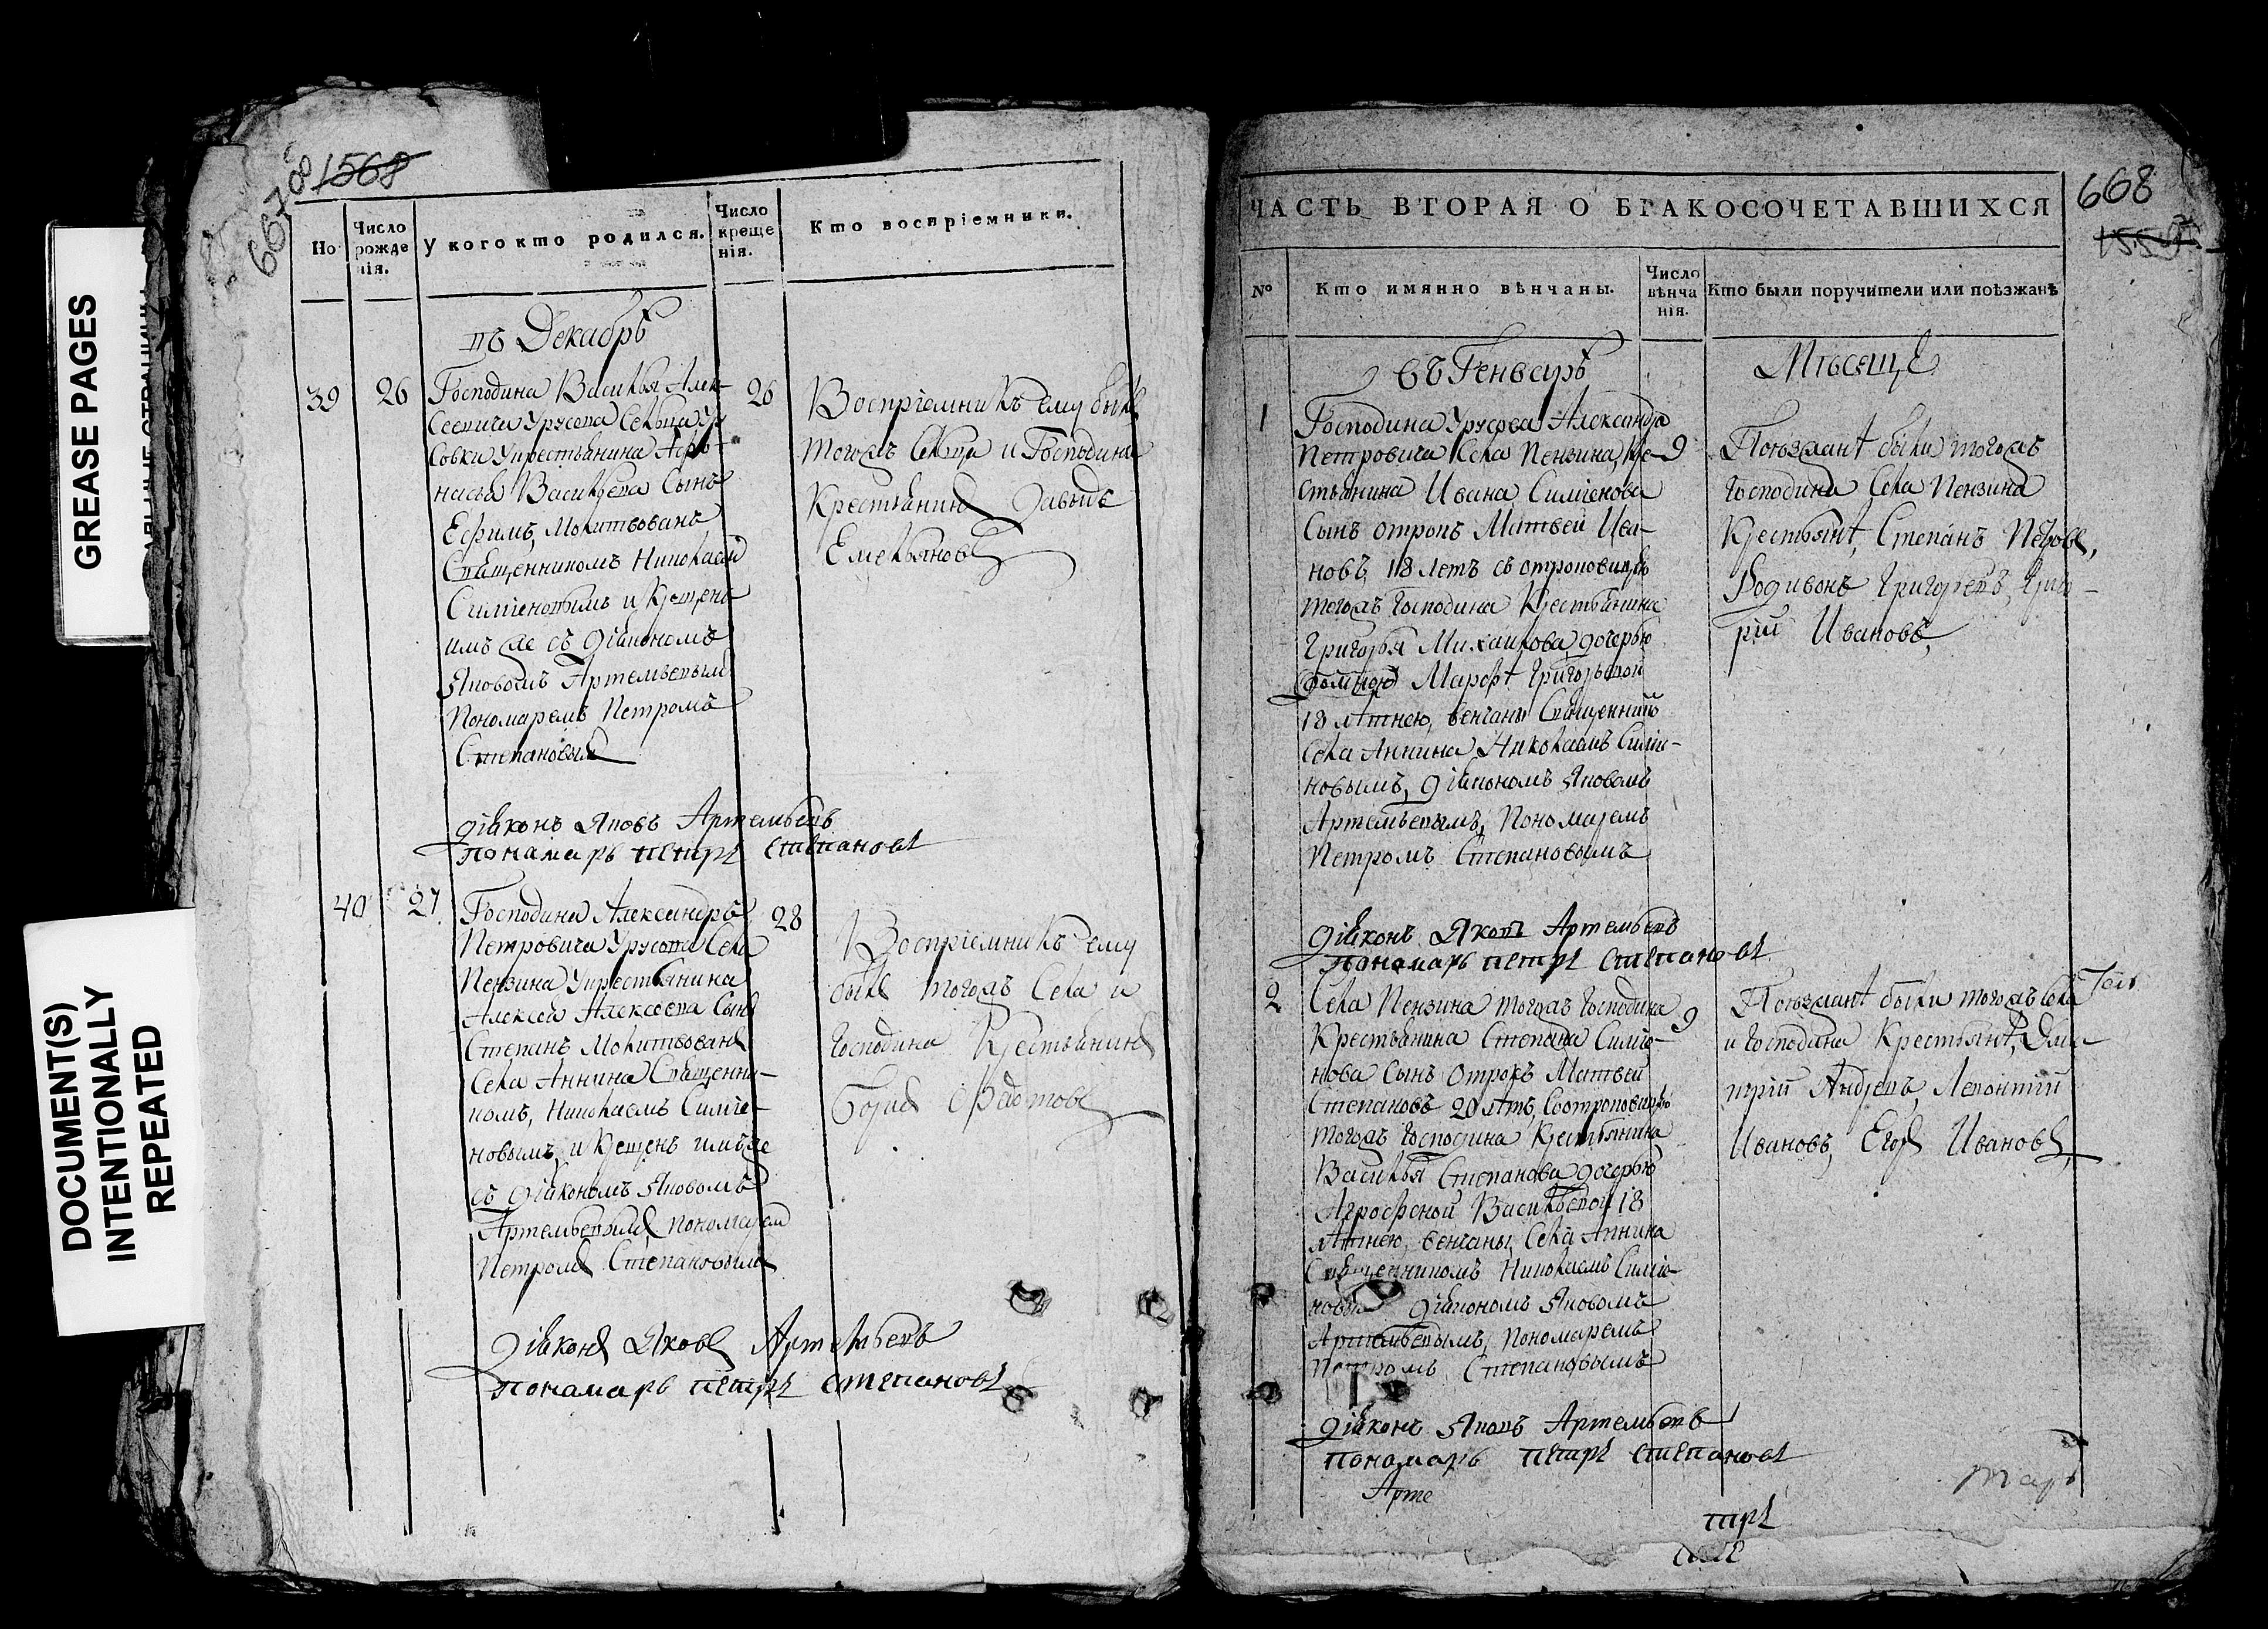 GREASE PAGES
DOCUMENT(S)
INTENTIONALLY
REPEATED
667 об 1568
Но
Число рожденія.
У кого кто родился.
Число крещенія.
Кто воспріемники.
въ Декабрѣ
39 26 26
Господина Василья Алек-
сеевича Урусова Сельца Уру-
совки у крестьянина Афо-
насья Васильева Сынъ
Ефимъ, Молитвованъ
Священникомъ Николаемъ
Симіеновымъ и крещенъ
имъ же съ діякономъ
Яковомъ Артемьевымъ
Пономаремъ Петромъ
Степановымъ
Воспріемникъ ему былъ
тогожъ Сельца и Господина
Крестьянинъ Давыдъ
Емельяновъ
діяконъ Яковъ Артемьевъ
понамарь петръ степановъ
40 27 28
Господина Александра
Петровича Урусова Села
Пензина у крестьянина
Алексея Алексеева Сынъ
Степанъ Молитвованъ
Села Аннина Священни-
комъ, Николаемъ Симіе-
новымъ, и крещенъ имъ же
съ діякономъ Яковомъ
Артемьевымъ, пономаремъ
Петромъ Степановымъ
Воспріемникъ ему
былъ тогожъ Села и
Господина Крестьянинъ
Борисъ Федотовъ
діяконъ Яковъ Артемьевъ
понамарь петръ степановъ
ЧАСТЬ ВТОРАЯ О БРАКОСОЧЕТАВШИХСЯ
668
№
Кто имянно вѣнчаны.
Число вѣнчанія.
Кто были поручители или поѣзжанѣ
въ Генварѣ Мѣсяцѣ
1 9
Господина Урусова Александра
Петровича Села Пензина, Кре-
стьянина Ивана Симіенова
Сынъ отрокъ Матвей Ива-
новъ, 18 летъ съ отроковицею
тогожъ Господина Крестьянина
Григорья Михаилова дочерью
Марфѣ Григорьевой
18 лѣтнею, венчаны Священникомъ
Села Аннина Николаемъ Симіе-
новымъ, діякономъ Яковомъ
Артемьевымъ, Пономаремъ
Петромъ Степановымъ
Поѣзжанѣ были тогожъ
Господина Села Пензина
Крестьянѣ, Степанъ Петровъ,
Родивонъ Григорьевъ,
Ивановъ,
діяконъ Яковъ Артемьевъ
понамарь петръ степановъ
2 9
Села Пензина тогожъ Господина
Крестьянина Степана Симіе-
нова Сынъ Отрокъ Матвей
Степановъ 20 лѣтъ, Соотроковицею
тогожъ Господина Крестьянина
Василья Степанова дочерью
Агрофеной Васильевой 18
лѣтнею, венчаны Села Аннина
Священникомъ Николаемъ Симіе-
новымъ діякономъ Яковомъ
Артемьевымъ, Пономаремъ
Петромъ Степановымъ
Поѣзжанѣ были тогожъ Села
и Господина Крестьянѣ, Дми-
трій Андреевъ, Леонтій
Ивановъ, Егоръ Ивановъ,
діяконъ Яковъ Артемьевъ
понамарь петръ степановъ
Арте